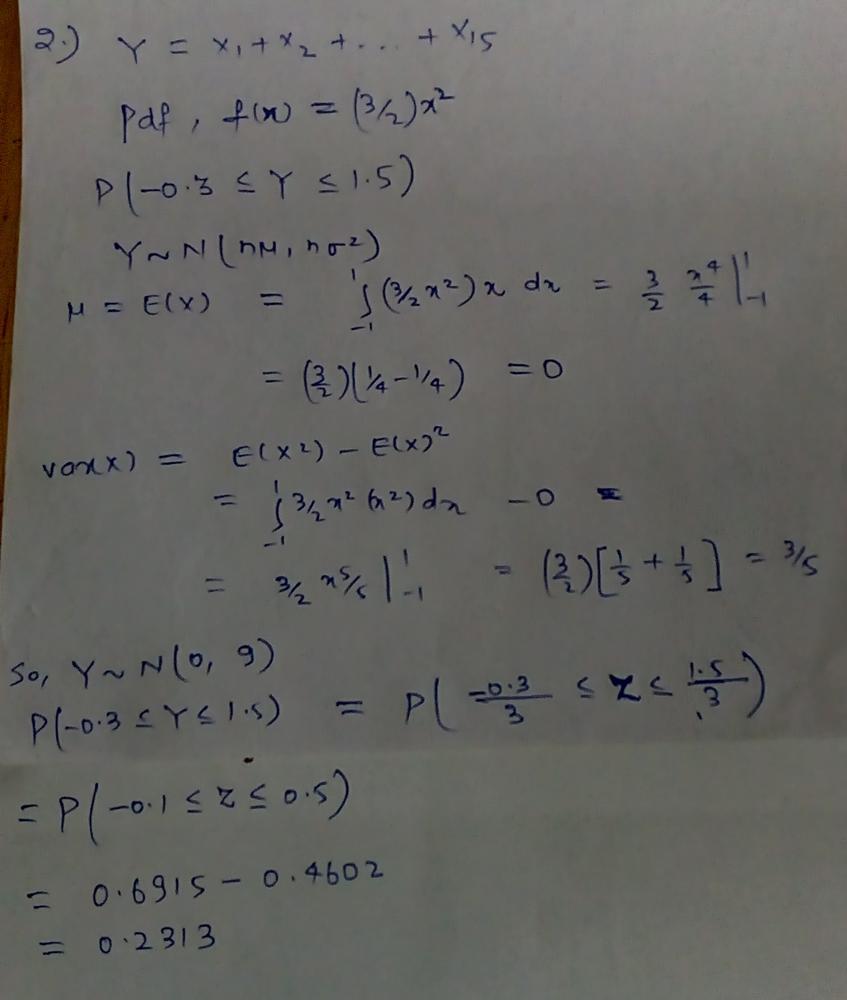 2.) Y = x₁ + x₂ + ... + x₁₅
Pdf, f(x) = (3/2)x²
P(-0.3 ≤ Y ≤ 1.5)
Y ~ N(nμ, nσ²)
μ = E(X) = ∫₋₁¹ (3/2 x²) x dx = 3/2 x⁴/4 |₋₁¹
= (3/2)(1/4 - 1/4) = 0
var(x) = E(X²) - E(X)²
= ∫₋₁¹ 3/2 x² (x²) dx - 0 =
= 3/2 x⁵/5 |₋₁¹ = (3/2)[1/5 + 1/5] = 3/5
So, Y ~ N(0, 9)
P(-0.3 ≤ Y ≤ 1.5) = P(-0.3/3 ≤ Z ≤ 1.5/3)
= P(-0.1 ≤ Z ≤ 0.5)
= 0.6915 - 0.4602
= 0.2313